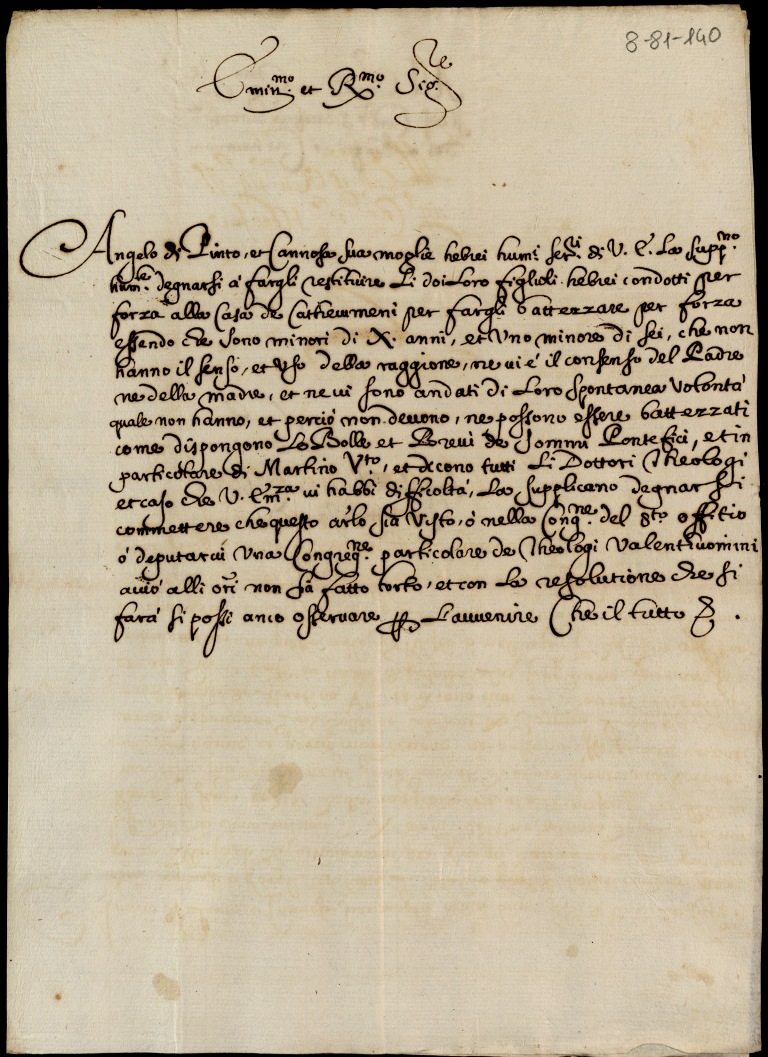 8-81-140
Emin.mo et R.mo Sig.re
Angelo di Pinto, et Cannosa sua moglie hebrei hum.i ser.ri di V. E. La supp.no
hum.e degnarsi a fargli restituire Li doi Loro figlioli hebrei condotti per
forza alla Casa de Cattecumeni per fargli battezzare per forza
essendo che sono minori di X. anni, et uno minore di sei, che non
hanno il senso, et uso della raggione, ne vi é il consenso del Padre
ne della madre, et ne vi sono andati di Loro spontanea volontá
quale non hanno, et perció non devono, ne possono essere battezzati
come dispongono Le Bolle et Brevi de Sommi Pontefici, et in
particolare di Martino V.to, et dicono tutti Li Dottori Theologi
et caso che V. Em.za vi habbi difficoltá, La supplicano degnarsi
commettere che questo arlo sia visto, ó nella Cong.ne del S.to offitio
ó deputarvi una Congreg.ne particolare de Theologi valent'uomini
acció alli ori non sia fatto torto, et con La resolutione che si
fará si possi anco osservare per L'avvenire Che il tutto &.